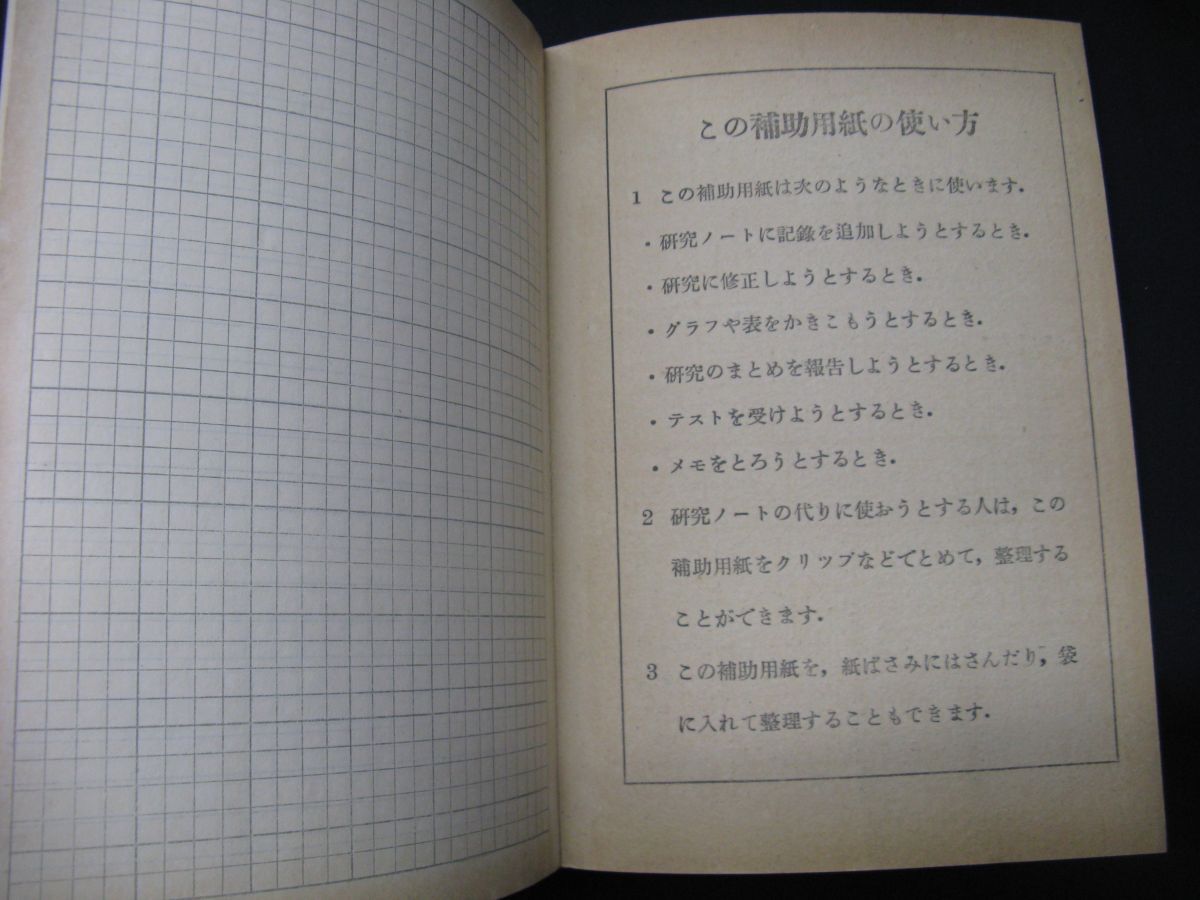 この補助用紙の使い方
1 この補助用紙は次のようなときに使います．
・研究ノートに記錄を追加しようとするとき．
・研究に修正しようとするとき．
・グラフや表をかきこもうとするとき．
・研究のまとめを報告しようとするとき．
・テストを受けようとするとき．
・メモをとろうとするとき．
2 研究ノートの代りに使おうとする人は，この
補助用紙をクリップなどでとめて，整理する
ことができます．
3 この補助用紙を，紙ばさみにはさんだり，袋
に入れて整理することもできます．